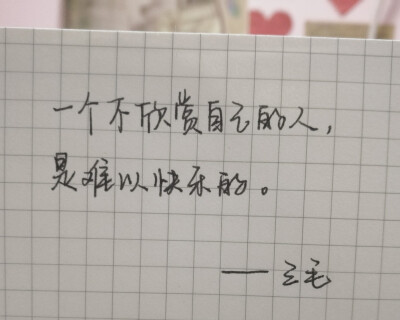 一个不欣赏自己的人，
是难以快乐的。
——三毛